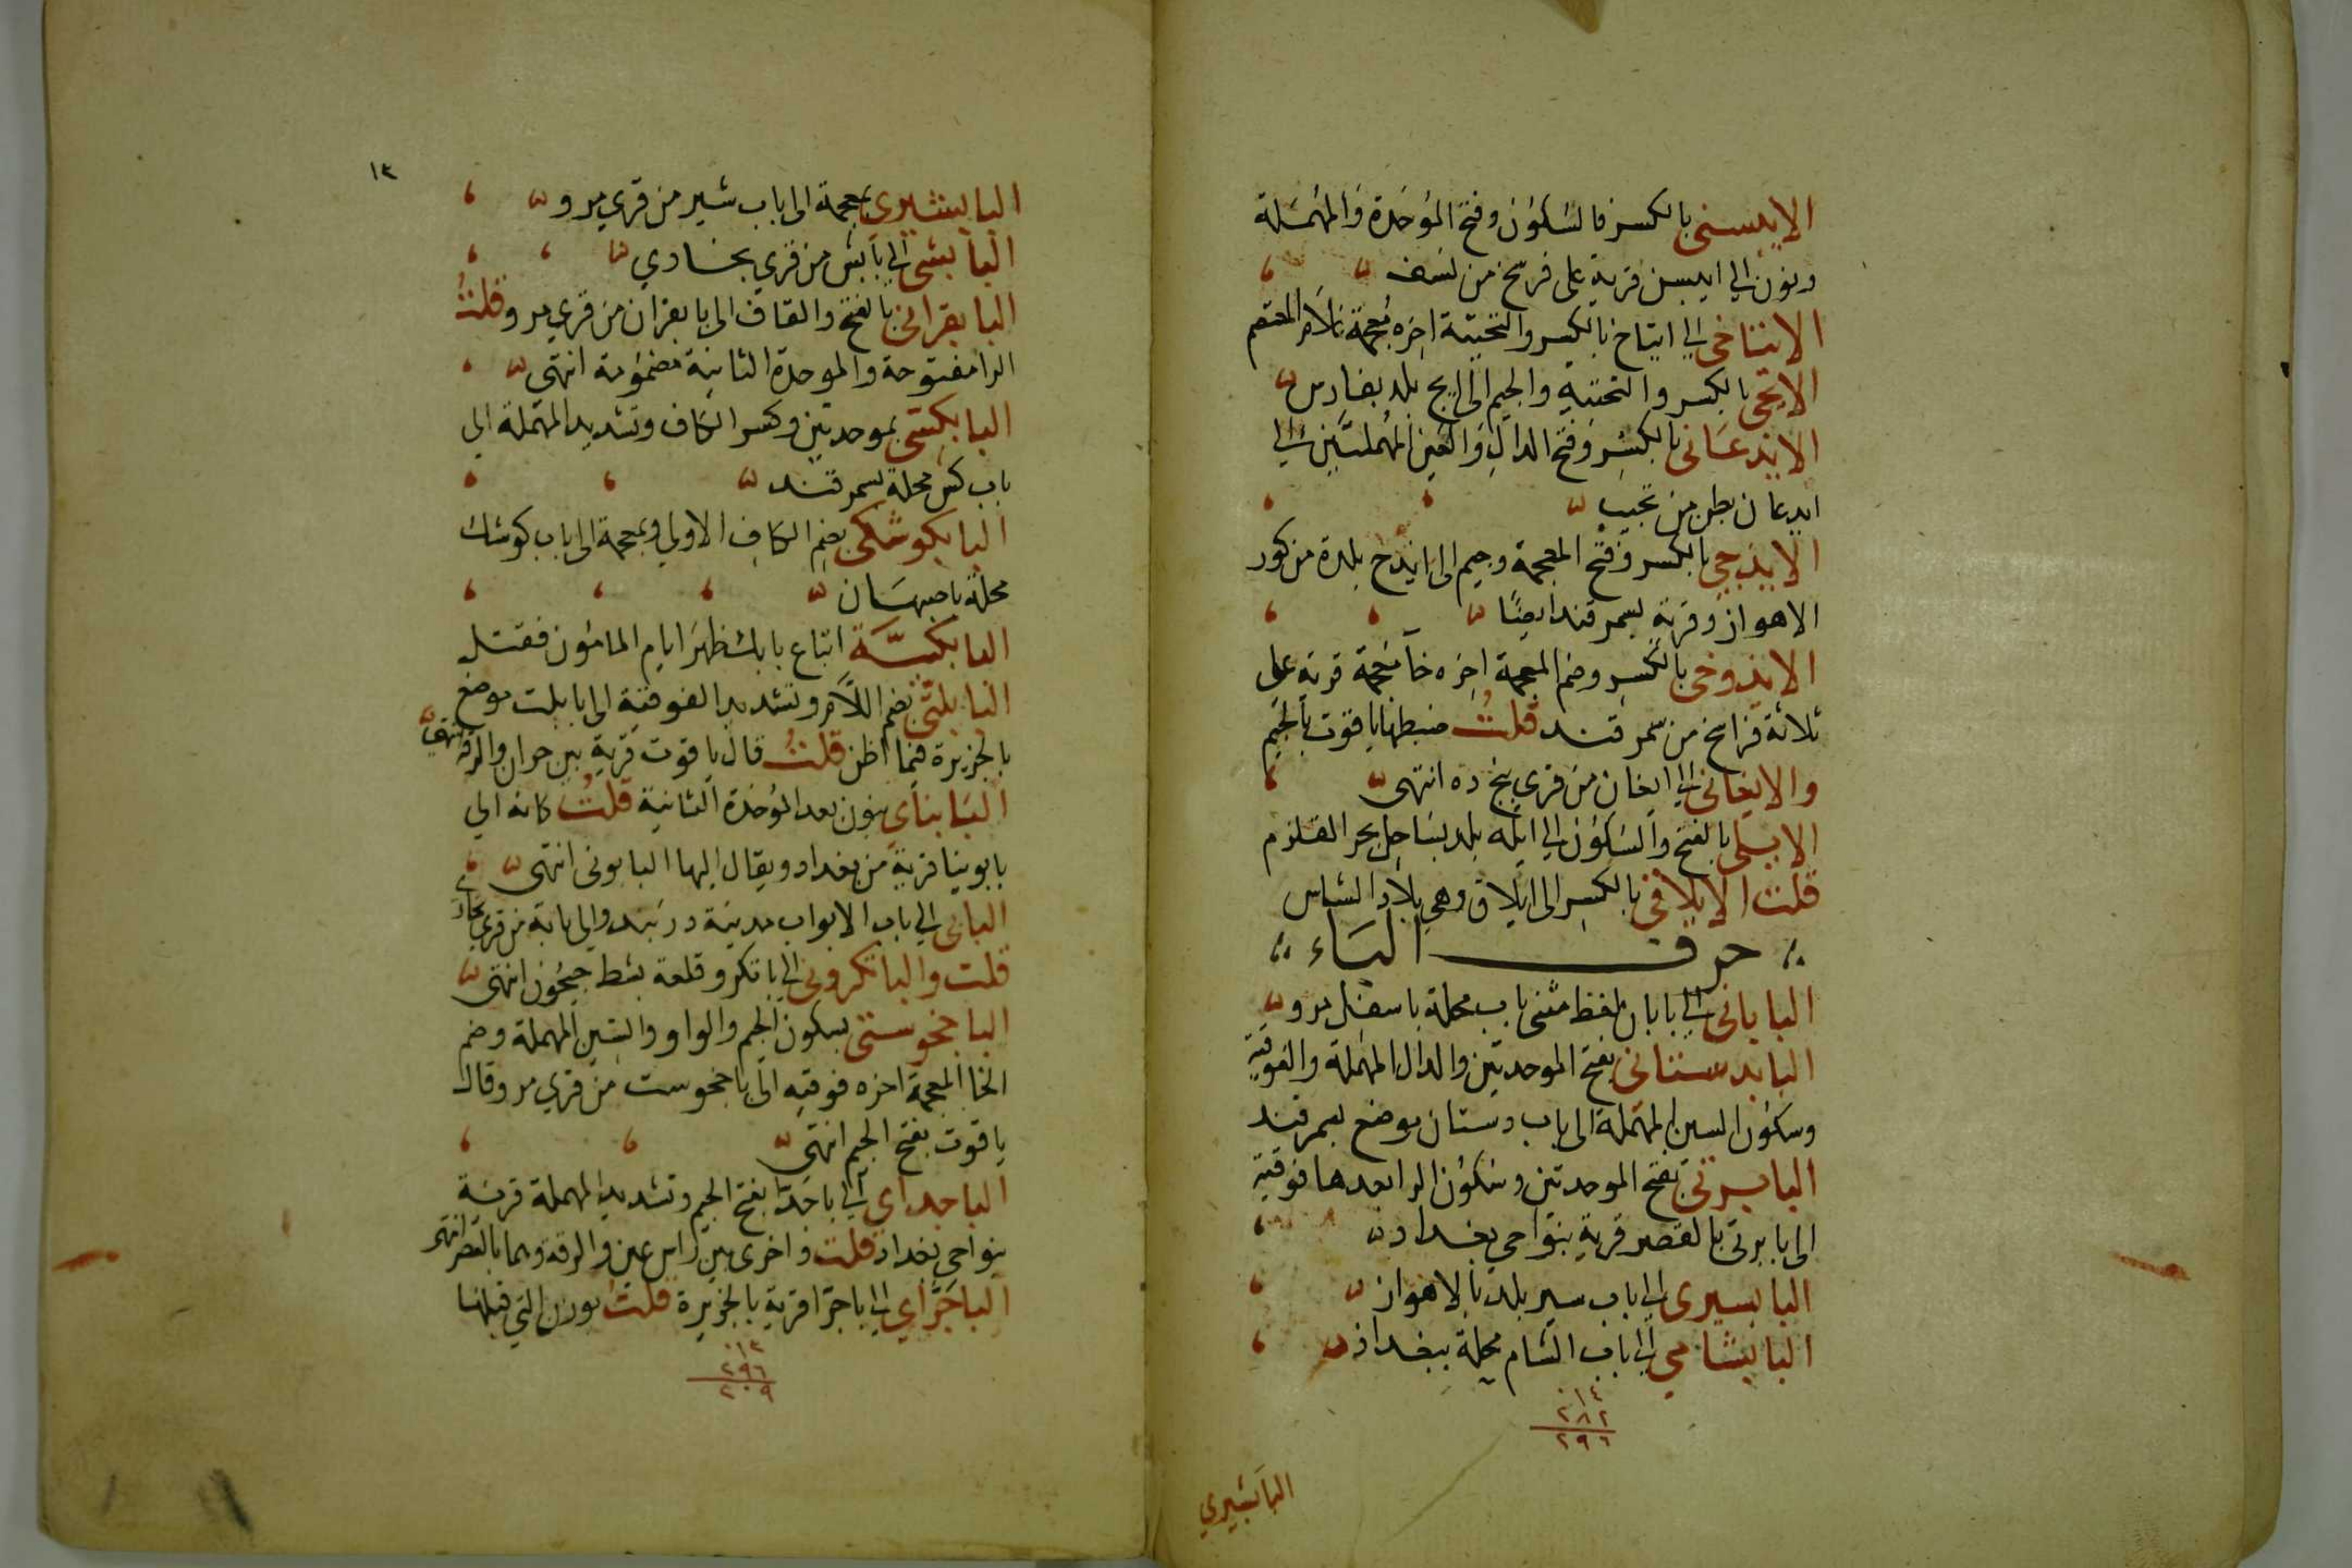 الايبسنى بالكسر فالسكون وفتح الموحدة والمهملة
ونون الي ايبسن قرية على فرسخ من نسف
الايتاخى الي ايتاخ بالكسر والتحتية اخره معجمة غلام المعتصم
الايجى بالكسر والتحتية والجيم الى ايج بلد بفارس
الايدعانى بالكسر وفتح الدال والعين المهملتين الي
ايدعان بطن من تجيب
الايذجي بالكسر وفتح المعجمة وجيم الى ايذج بلدة من كور
الاهواز وقرية بسمرقند ايضا
الايذوخى بالكسر وضم المعجمة اخره خا معجمة قرية على
ثلاثة فراسخ من سمرقند قلت ضبطها ياقوت بالجيم
والايغانى الي ايغان من قرى پنج ده انتهى
الايلى بالفتح والسكون الي ايله بلد بساحل بحر القلزم
قلت الايلاقى بالكسر الى ايلاق وهي بلاد الشاس
حرف الباء
البابانى الي بابان بلفظ مثنى باب محلة باسفل مرو
البابدستانى بفتح الموحدتين والدال المهملة والفوقية
وسكون السين المهملة الى باب دستان موضع بسمرقند
البابرتى بفتح الموحدتين وسكون الرا بعدها فوقية
الى بابرتى بالقصر قرية بنواحي بغداد
البابسيرى الي باب سير بلد بالاهواز
البابشامي الي باب الشام محلة ببغداد
١٤
٢٨٢
٢٩٦
البابشيري
١٣
البابشيري بمعجمة الى باب شير من قرى مرو
البابشى الي بابش من قرى بخاري
البابقرانى بالفتح والقاف الى بابقران من قرى مرو قلت
الرا مفتوحة والموحدة الثانية مضمومة انتهى
البابكسى بموحدتين وكسر الكاف وتشديد المهملة الى
باب كس محلة بسمرقند
البابكوشكى بضم الكاف الاولى وبمعجمة الى باب كوشك
محلة باصبهان
البابكيّة اتباع بابك ظهر ايام المامون فقتل
البابلتى بضم اللام وتشديد الفوقية الى بابلت موضع
بالجزيرة فيما اظن قلت قال ياقوت قرية بين حران والرقة انتهى
البابناي بنون بعد الموحدة الثانية قلت كانه الي
بابونيا قرية من بغداد ويقال اليها البابونى انتهى
البابى الي باب الابواب مدينة دربند والي بابة من قرى بخارى
قلت والباتكرونى الي باتكرو قلعة بشط جيحون انتهى
الباجخوستى بسكون الجيم والواو والسين المهملة وضم
الخا المعجمة اخره فوقية الى باجخوست من قرى مرو وقال
ياقوت بفتح الجيم انتهى
الباجداي الي باجدا بفتح الجيم وتشديد المهملة قرية
بنواحي بغداد قلت واخرى بين راس عين والرقة وهما بالقصر انتهى
الباجراي الي باجرا قرية بالجزيرة قلت بوزن التي قبلها
٢٩٦
٢٠٩